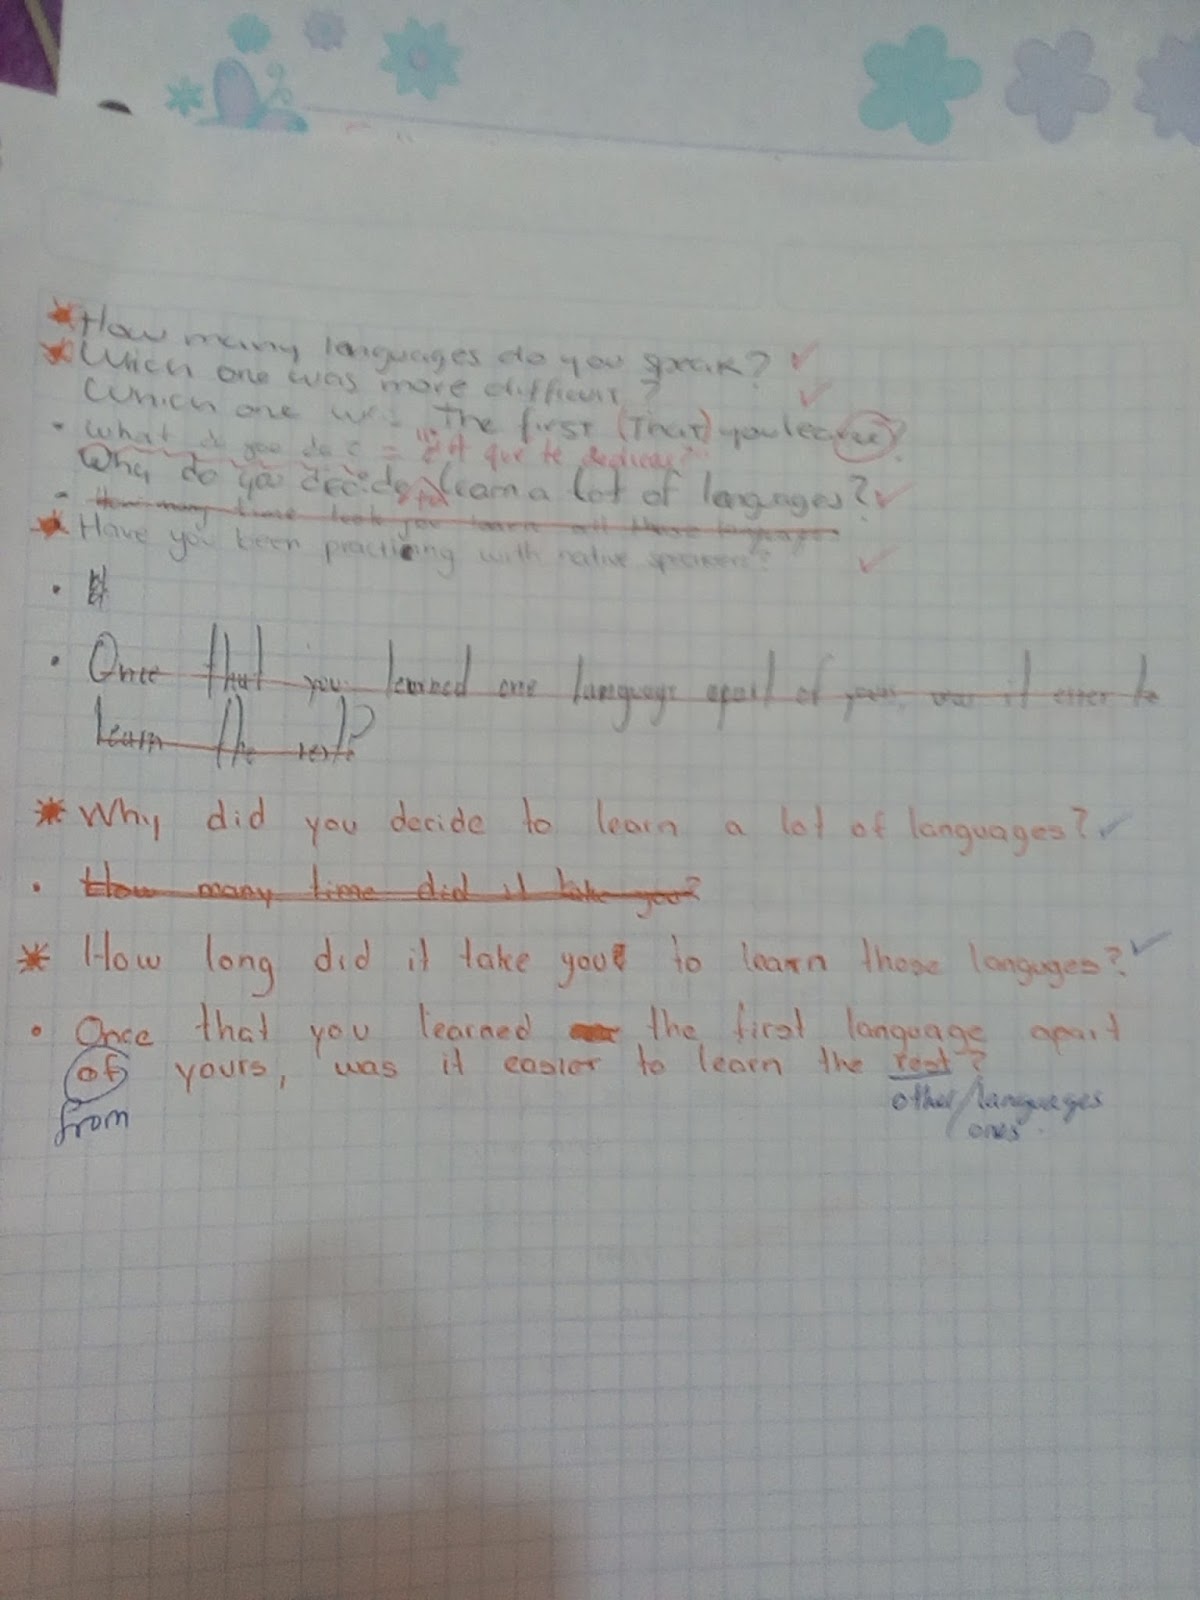 How many languages do you speak?
Which one was more difficult?
Which one was the first (that) you learne?
What do you do? = "¿A que te dedicas?"
Why do you decide to learn a lot of languages?
How many time took you learn all those language
Have you been practicing with native speakers?
Once that you learned one language apart of yours, was it easier to
learn the rest?
Why did you decide to learn a lot of languages?
How many time did it take you?
How long did it take you to learn those languges?
Once that you learned the first language apart
of yours, was it easier to learn the rest?
from
other/languages
ones